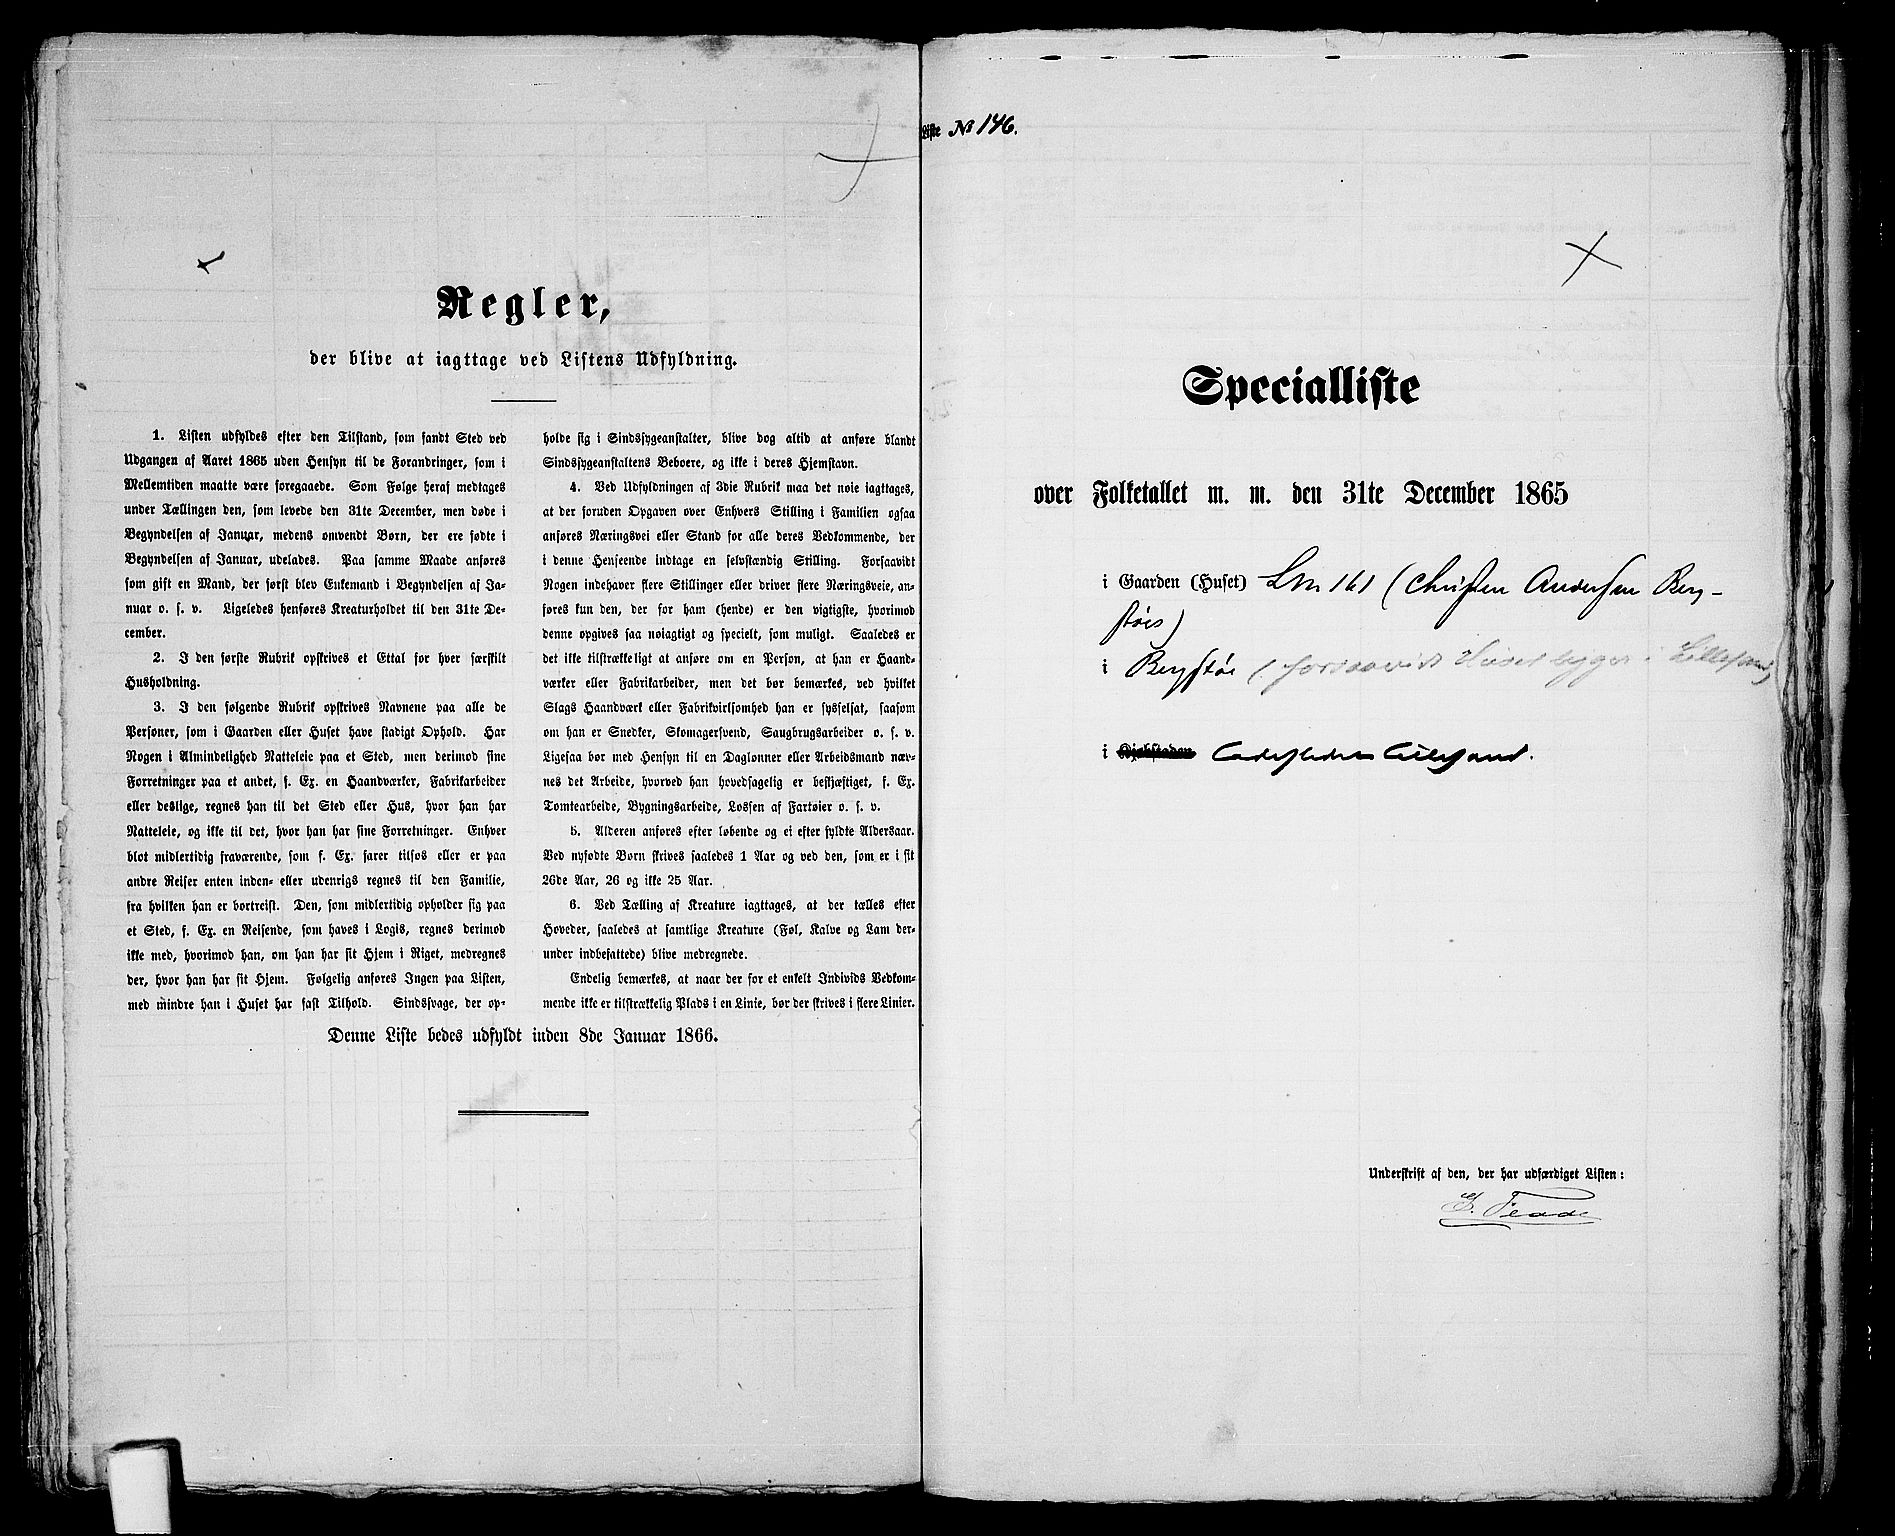 Regler,
der blive at iagttage ved Listens Udfyldning.
1. Listen udfyldes efter den Tilstand, som fandt Sted ved
Udgangen af Aaret 1865 uden Hensyn til de Forandringer, som i
Mellemtiden maatte være foregaaede. Som Følge heraf medtages
under Tællingen den, som levede den 31te December, men døde i
Begyndelsen af Januar, medens omvendt Børn, der ere fødte i
Begyndelsen af Januar, udelades. Paa samme Maade anføres
som gift en Mand, der først blev Enkemand i Begyndelsen af Ja-
nuar o. s. v. Ligeledes henføres Kreaturholdet til den 31te De-
cember.
2. I den første Rubrik opskrives et Ettal for hver særskilt
Husholdning.
3. I den følgende Rubrik opskrives Navnene paa alle de
Personer, som i Gaarden eller Huset have stadigt Ophold. Har
Nogen i Almindelighed Natteleie paa et Sted, men derimod sine
Forretninger paa et andet, f. Ex. en Haandværker, Fabrikarbeider
eller deslige, regnes han til det Sted eller Hus, hvor han har
Natteleie, og ikke til det, hvor han har sine Forretninger. Enhver
blot midlertidig fraværende, som f. Ex. farer tilsøs eller er paa
andre Reiser enten inden- eller udenrigs regnes til den Familie,
fra hvilken han er bortreist. Den, som midlertidig opholder sig paa
et Sted, f. Ex. en Reisende, som haves i Logis, regnes derimod
ikke med, hvorimod han, om han har sit Hjem i Riget, medregnes
der, hvor han har sit Hjem. Følgelig anføres Ingen paa Listen,
med mindre han i Huset har fast Tilhold. Sindssvage, der op-
holde sig i Sindssygeanstalter, blive dog altid at anføre blandt
Sindssygeanstaltens Beboere, og ikke i deres Hjemstavn.
4. Ved Udfyldningen af 3die Rubrik maa det nøie iagttages,
at der foruden Opgaven over Enhvers Stilling i Familien ogsaa
anføres Næringsvei eller Stand for alle deres Vedkommende, der
i denne Henseende indtage en selvstændig Stilling. Forsaavidt
Nogen indehaver flere Stillinger eller driver flere Næringsveie, an-
føres kun den, der for ham (hende) er den vigtigste, hvorimod
denne opgives saa nøiagtigt og specielt, som muligt. Saaledes er
det ikke tilstrækkeligt at anføre om en Person, at han er Haand-
værker eller Fabrikarbeider, men det bør bemærkes, ved hvilket
Slags Haandværk eller Fabrikvirksomhed han er sysselsat, saasom
om han er Snedker, Skomagersvend, Saugbrugsarbeider o. s. v.
Ligesaa bør med Hensyn til en Daglønner eller Arbeidsmand næv-
nes det Arbeide, hvorved han hovedsagelig er beskjæftiget, f. Ex.
Tomtearbeide, Bygningsarbeide, Lossen af Fartøier o. s. v.
5. Alderen anføres efter løbende og ei efter fyldte Aldersaar.
Ved nyfødte Børn skrives saaledes 1 Aar og ved den, som er i sit
26de Aar, 26 og ikke 25 Aar.
6. Ved Tælling af Kreature iagttages, at der tælles efter
Hoveder, saaledes at samtlige Kreature (Føl, Kalve og Lam der-
under indbefattede) blive medregnede.
Endelig bemærkes, at naar der for et enkelt Individs Vedkom-
mende ikke er tilstrækkelig Plads i en Linie, bør der skrives i flere Linier.
Denne Liste bedes udfyldt inden 8de Januar 1866.
Liste № 146.
Specialliste
over Folketallet m. m. den 31te December 1865
i Gaarden (Huset) LN 161 (Christen Andersen Berg-
støes)
i Bergstøe (forsaavidt Huset ligger i Lillesand)
i Ladestedet Lillesand.
Underskrift af den, der har udfærdiget Listen: